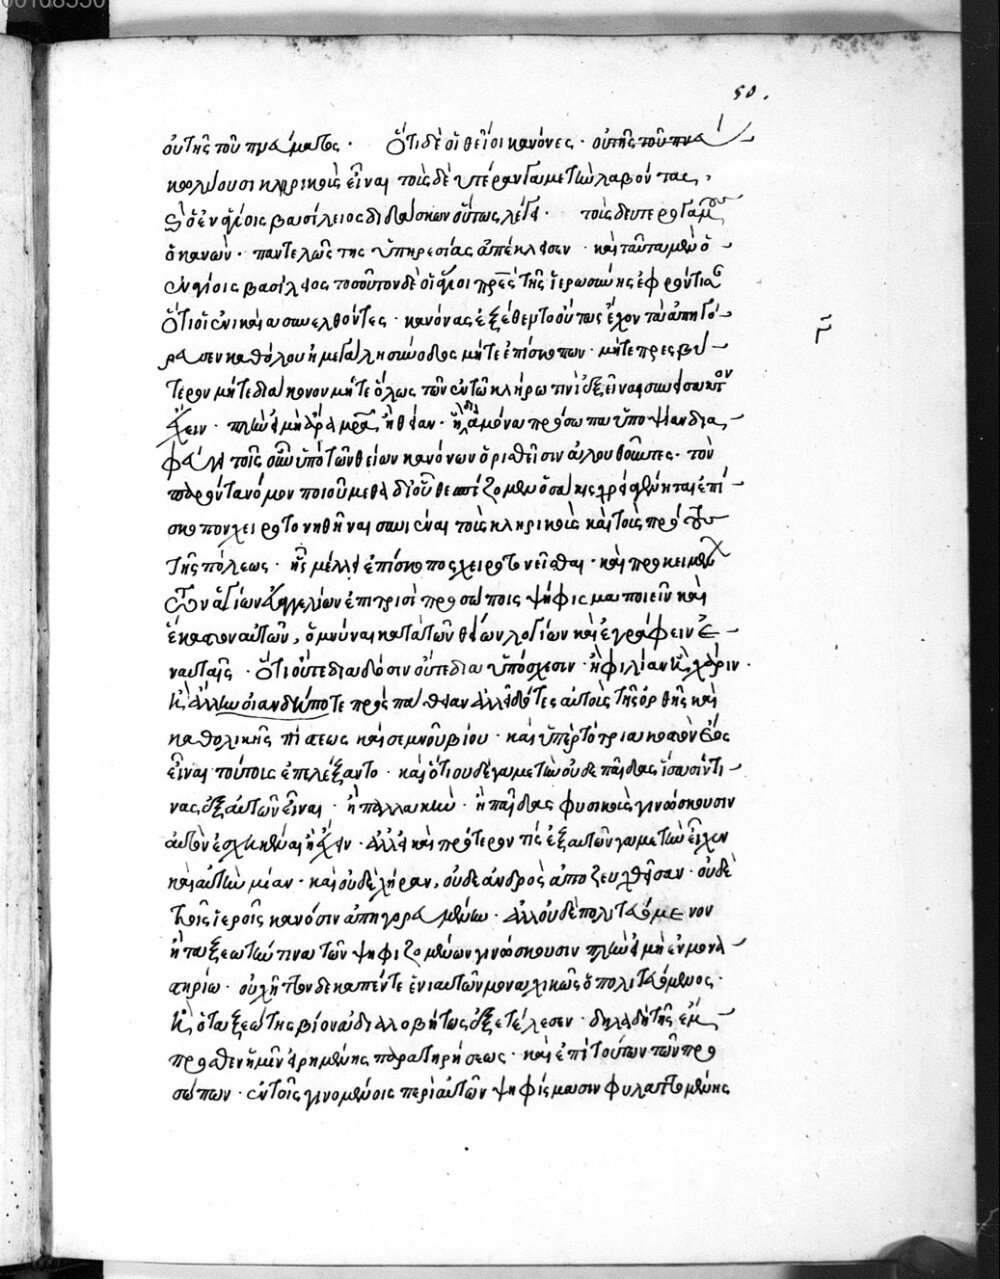 50.
οὐ τῆς τοῦ πράγματος · Ὅτι δὲ οἱ θεῖοι κανόνες · οὐ τῆς τοῦ πρα
κωλύουσι κληρικοὺς εἶναι τοὺς δευτέραν γαμετὴν λαβόντας,
ὁ ἐν ἁγίοις βασίλειος διδάσκων οὕτως λέγει · τοὺς δευτερογάμους
ὁ κανὼν · παντελῶς τῆς ὑπηρεσίας ἀπέκλεισεν · καὶ ταῦτα μὲν ὁ
ἐν ἁγίοις βασίλειος τοσοῦτον δὲ οἱ ἅγιοι πρες τῆς ἱερωσύνης ἐφρόντισαν
Ὅτι οἱ ἐν νικαία συνελθόντες · κανόνας ἐξέθεντο οὕτως ἔχοντας ἀπηγό
ρευσεν καθόλου ἡ μεγάλη σύνοδος μήτε ἐπίσκοπον · μήτε πρεσβύ
τερον μήτε διάκονον μήτε ὅλως τῶν ἐν τῶ κλήρω τινὶ ἐξεῖναι συνείσακτον
ἔχειν · πλὴν εἰ μὴ ἄρα μρα ἢ θείαν · ἢ ἃ μόνα πρόσωπα ὑποψίαν δια
φεύγει τοῖς οὖν ὑπὸ τῶν θείων κανόνων ὁρισθεῖσιν ἀκολουθοῦντες · τὸν
παρόντα νόμον ποιούμεθα δι' οὗ θεσπίζομεν ὁσάκις χρεία γένηται ἐπί
σκοπον χειροτονηθῆναι συνιέναι τοὺς κληρικοὺς καὶ τοὺς πρώτους
τῆς πόλεως · ἧς μέλλει ἐπίσκοπος χειροτονεῖσθαι · καὶ προκειμένων
τῶν ἁγίων εὐαγγελίων ἐπὶ τρισὶ προσώποις ψήφισμα ποιεῖν καὶ
ἕκαστον αὐτῶν, ὀμνύναι κατὰ τῶν θείων λογίων καὶ ἐγράφειν ἐ
ν αὐταῖς · Ὅτι οὔτε διὰ δόσιν οὔτε διὰ ὑπόσχεσιν · ἢ φιλίαν ἢ χάριν ·
ἢ ἄλλην οἱανδήποτε προσπάθειαν ἀλλ' εἰδότες αὐτοὺς τῆς ὀρθῆς καὶ
καθολικῆς πίστεως καὶ σεμνοῦ βίου · καὶ ὑπὲρ τὸ τριακοστὸν ἔτος
εἶναι τούτοις ἐπελέξαντο · καὶ ὅτι οὐδὲ γαμετὴν οὐδὲ παῖδας ἴσασίν τι
νας ἐξ αὐτῶν εἶναι · ἢ παλλακὴν · ἢ παῖδας φυσικοὺς γινώσκουσιν
αὐτὸν ἐσχηκέναι ἢ ἔχειν · ἀλλ' εἰ καὶ πρότερον τις ἐξ αὐτῶν γαμετὴν εἶχεν
καὶ αὐτὴν μίαν · καὶ οὐδὲ χήραν, οὐδὲ ἀνδρὸς ἀποζευχθεῖσαν · οὐδὲ
τοῖς ἱεροῖς κανόσιν ἀπηγορευμένην · ἀλλ' οὐδὲ πολιτευόμενον
ἢ ταξεώτην τινα τῶν ψηφιζομένων γινώσκουσιν πλὴν εἰ μὴ ἐν μονα
στηρίω · οὐχ ἧττον δεκαπέντε ἐνιαυτῶν μοναχικῶς ὁ πολιτευόμενος ·
ἢ ὁ ταξεώτης βίον ἀδιαλοβήτως ἐξετέλεσεν · δηλαδὴ τῆς ἔμ
προσθεν ἡμῖν εἰρημένης παρατηρήσεως · καὶ ἐπὶ τούτων τῶν προ
σώπων · ἐν τοῖς γινομένοις περὶ αὐτῶν ψηφίσμασιν φυλαττομένης